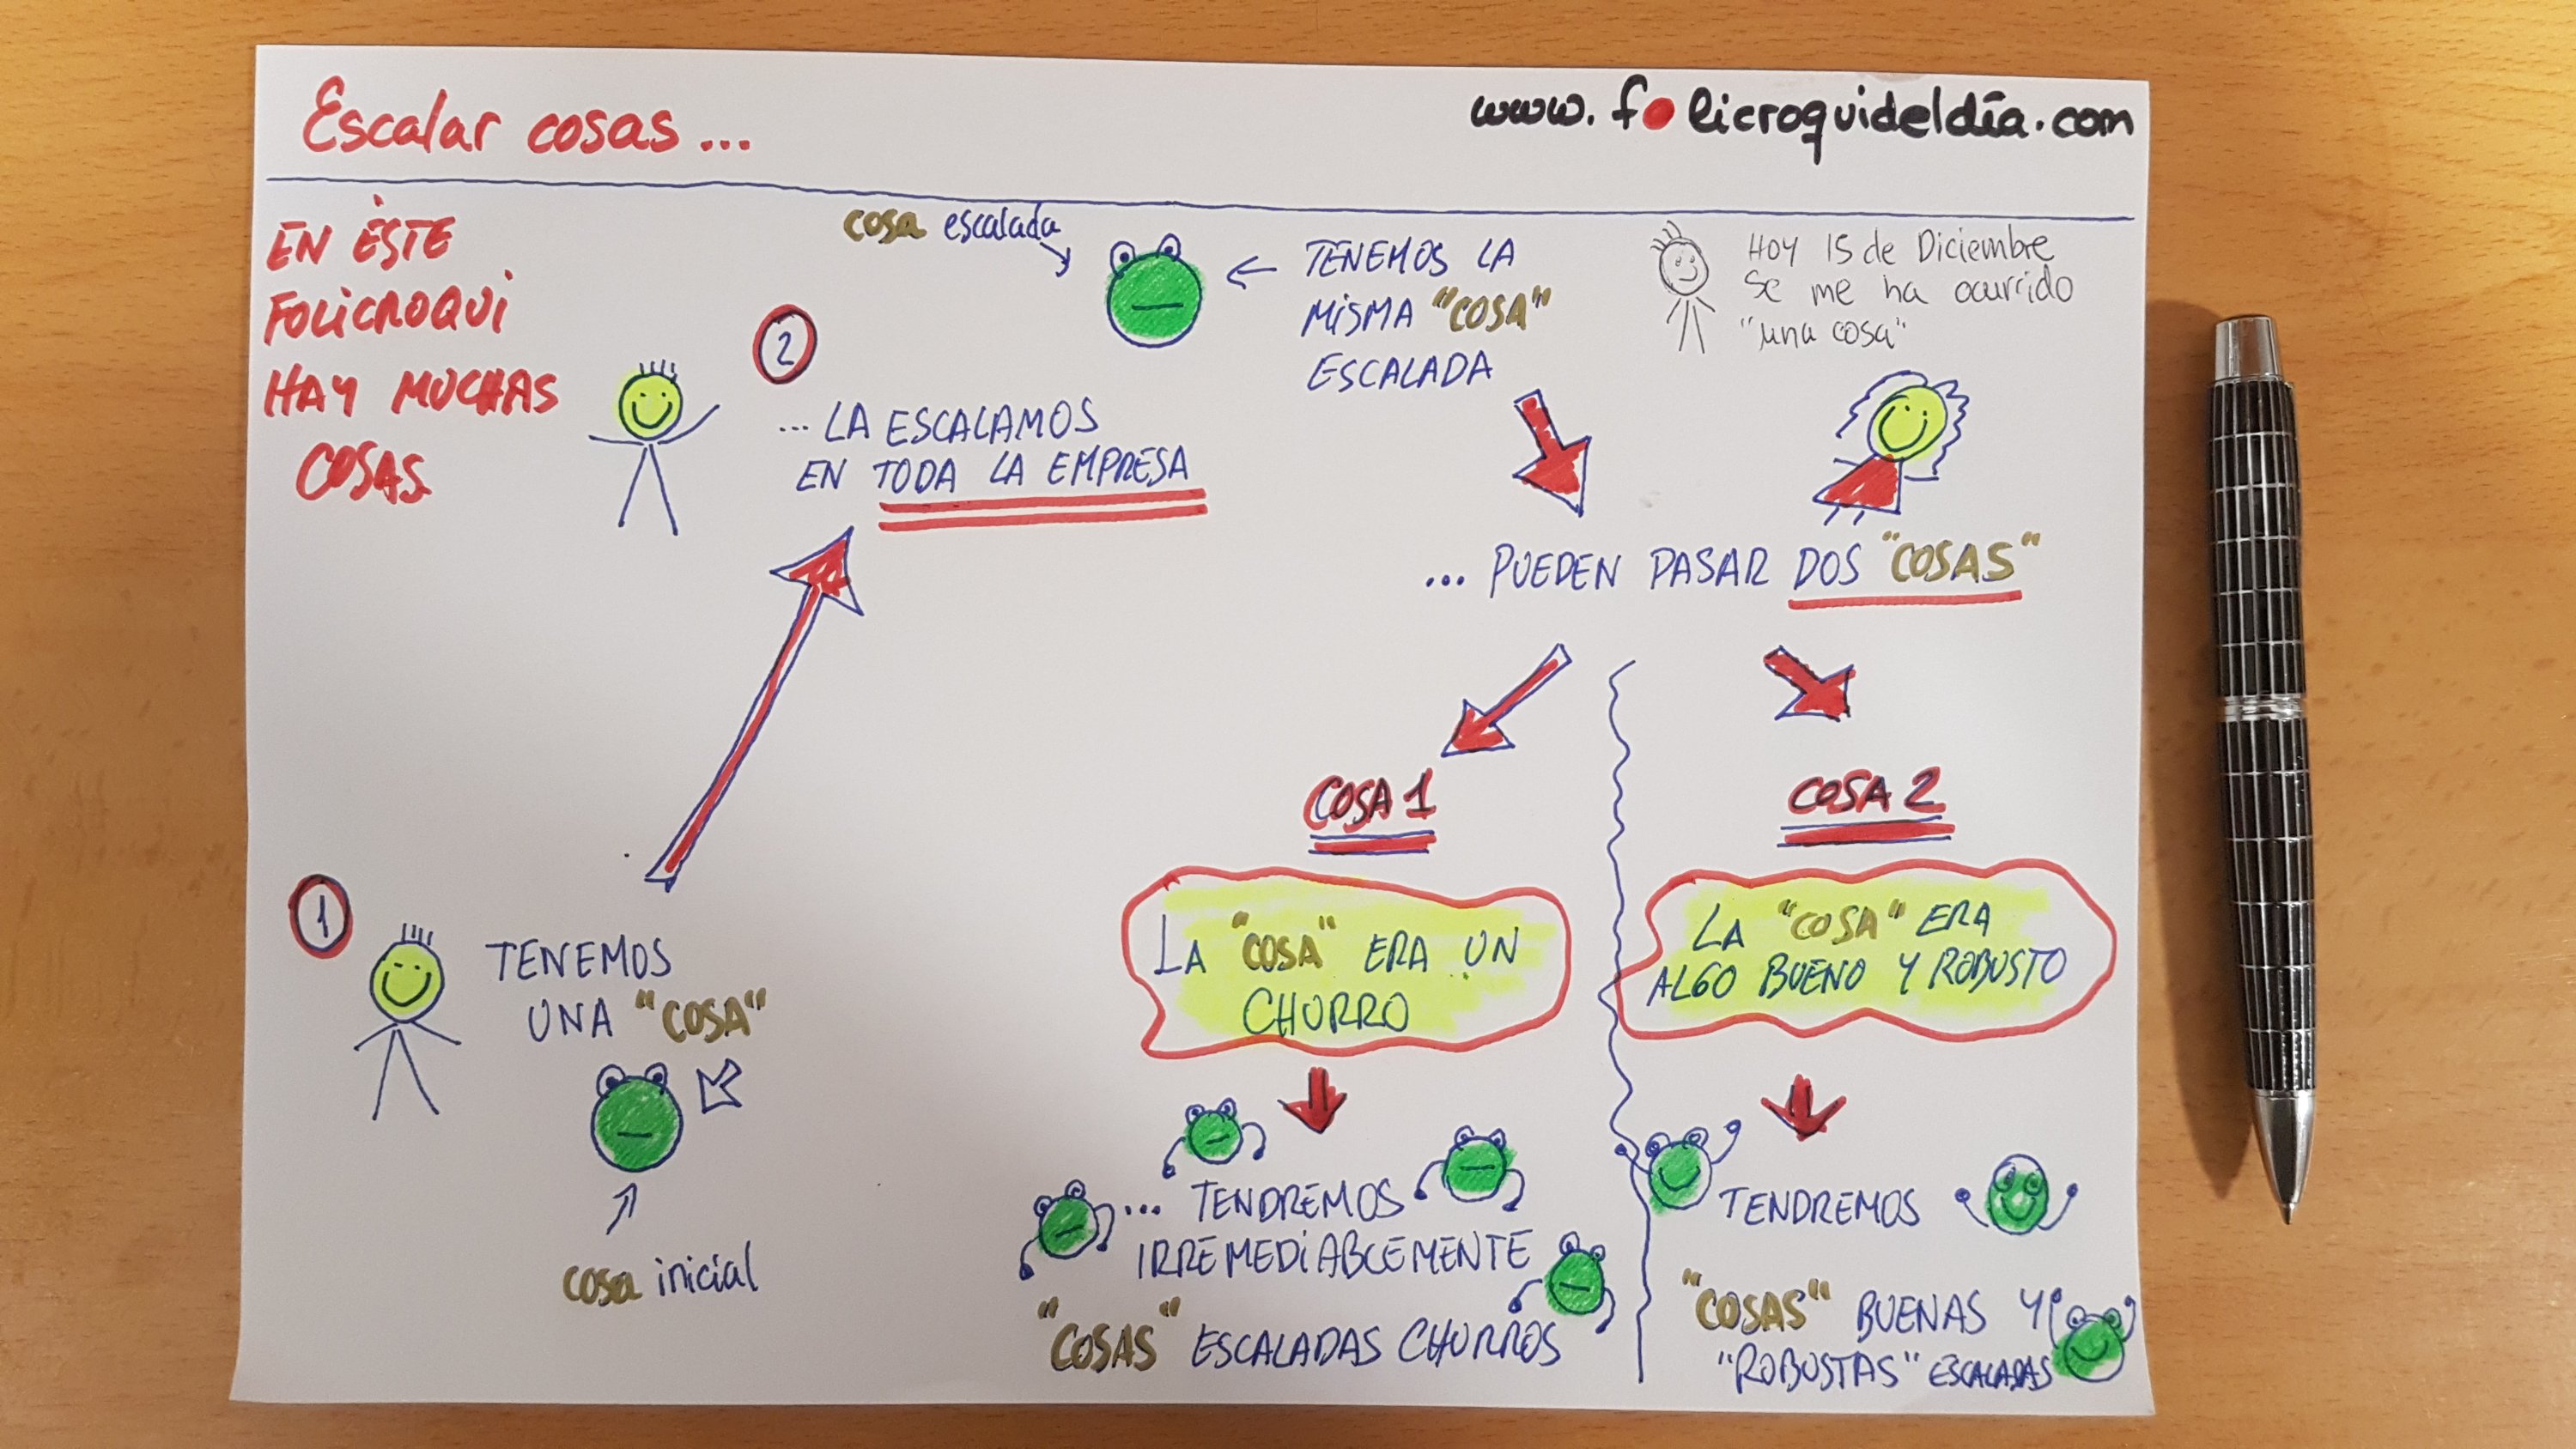 Escalar cosas...
www.folicroquideldía.com
EN ÉSTE
FOLICROQUI
HAY MUCHAS
COSAS
1
TENEMOS
UNA "COSA"
cosa inicial
2
...LA ESCALAMOS
EN TODA LA EMPRESA
cosa escalada
TENEMOS LA
MISMA "COSA"
ESCALADA
HOY 15 de Diciembre
se me ha ocurrido
"una cosa"
... PUEDEN PASAR DOS "COSAS"
COSA 1
LA "COSA" ERA UN
CHURRO
... TENDREMOS
IRREMEDIABLEMENTE
"COSAS" ESCALADAS CHURROS
COSA 2
LA "COSA" ERA
ALGO BUENO Y ROBUSTO
TENDREMOS
"COSAS" BUENAS Y
"ROBUSTAS" ESCALADAS